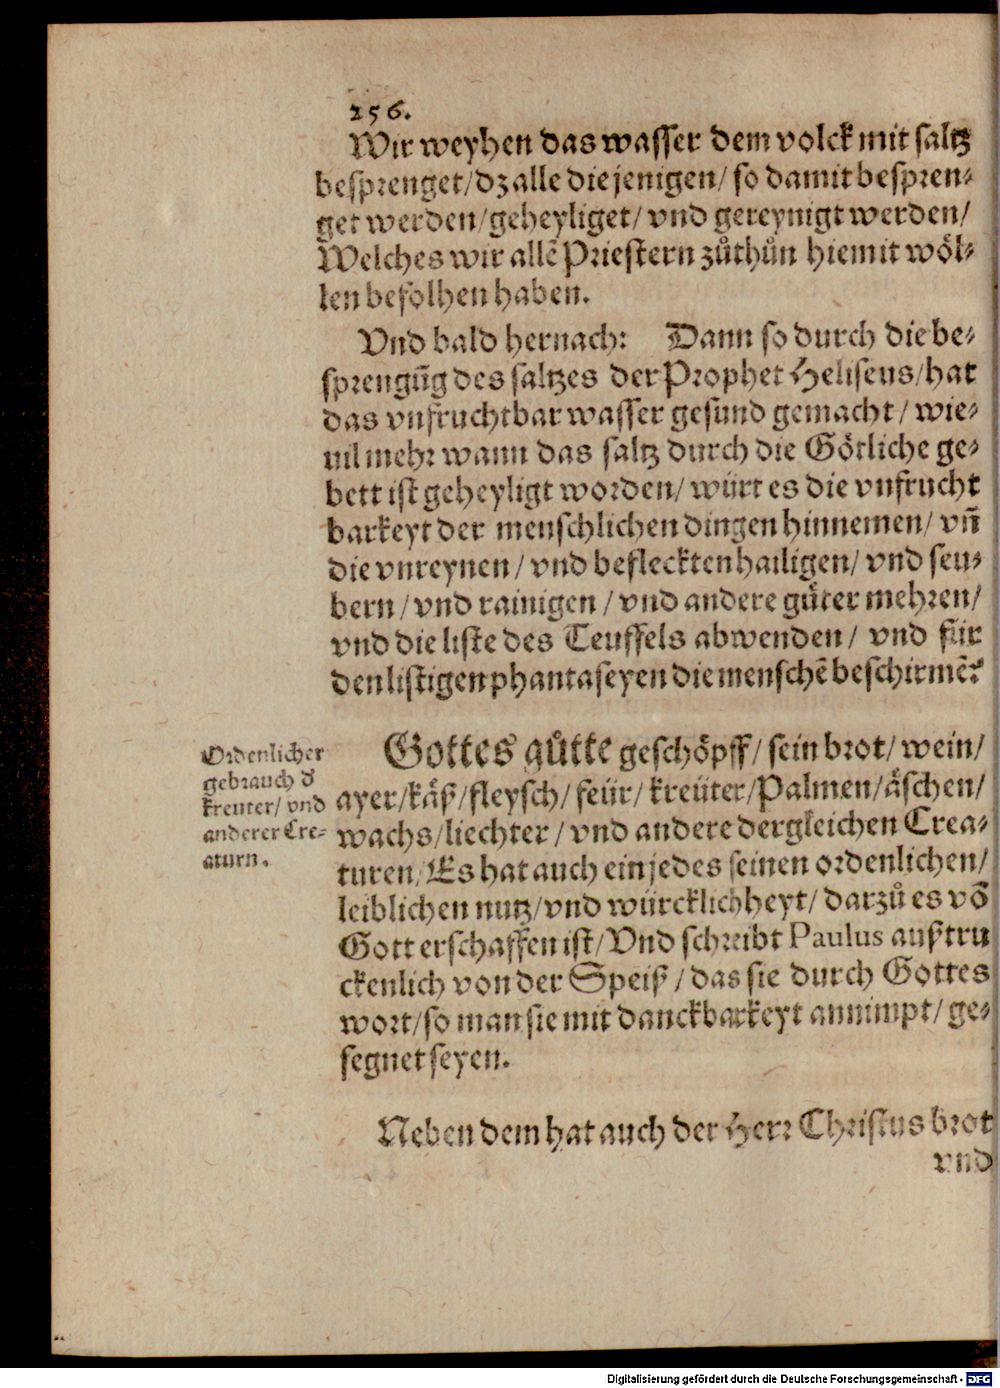 256.
Wir weyhen das wasser dem volck mit saltz
besprenget/dz alle diejenigen/ so damit bespren⸗
get werden/geheyliget/ vnd gereynigt werden/
Welches wir allẽ Priestern zůthůn hiemit wöl⸗
len befolhen haben.
Vnd bald hernach: Dann so durch die be⸗
sprengũg des saltzes der Prophet Heliseus/hat
das vnfruchtbar wasser gesund gemacht/ wie⸗
uil mehr wann das saltz durch die Götliche ge⸗
bett ist geheyligt worden/ würt es die vnfrucht
barkeyt der menschlichen dingen hinnemen/ vñ
die vnreynen/ vnd befleckten hailigen/ vnd seu⸗
bern/ vnd rainigen/ vnd andere gůter mehren/
vnd die liste des Teuffels abwenden/ vnd für
den listigen phantaseyen die menschẽ beschirmẽ?
Ordenlicher
gebrauch d
kreuter/ vnd
anderer Cre⸗
aturn.
Gottes gůtte geschöpff/ sein brot/ wein/
ayer/käß/fleysch/ feür/ kreüter/Palmen/äschen/
wachs/liechter/ vnd andere dergleichen Crea⸗
turen/ Es hat auch ein jedes seinen ordenlichen/
leiblichen nutz/vnd würcklichheyt/ darzů es võ
Gott erschaffen ist/ Vnd schreibt Paulus außtru
ckenlich von der Speiß/ das sie durch Gottes
wort/so man sie mit danckbarkeyt annimpt/ ge⸗
segnet seyen.
Neben dem hat auch der Herr Christus brot
vnd
Digitalisierung gefördert durch die Deutsche Forschungsgemeinschaft - DFG